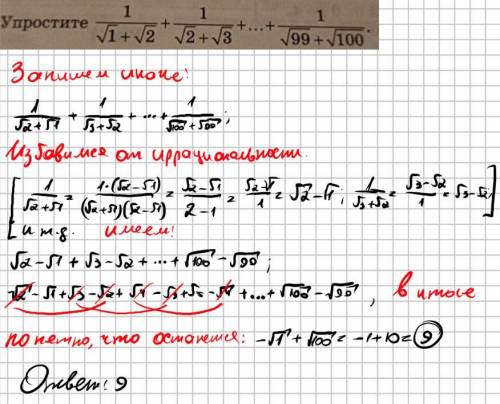 Упростите 1/(√1+√2) + 1/(√2+√3) + ... + 1/(√99+√100).
Запишем иначе:
1/(√2+√1) + 1/(√3+√2) + ... + 1/(√100+√99);
Избавимся от иррациональности.
[1/(√2+√1) = 1·(√2-√1)/((√2+√1)(√2-√1)) = (√2-√1)/(2-1) = (√2-√1)/1 = √2-√1; 1/(√3+√2) = (√3-√2)/1 = √3-√2]
и т.д. имеем:
√2-√1+√3-√2+...+√100-√99;
√2-√1+√3-√2+√4-√3+√5-√4+...+√100-√99, в итоге
понятно, что останется: -√1+√100=-1+10=9
Ответ: 9